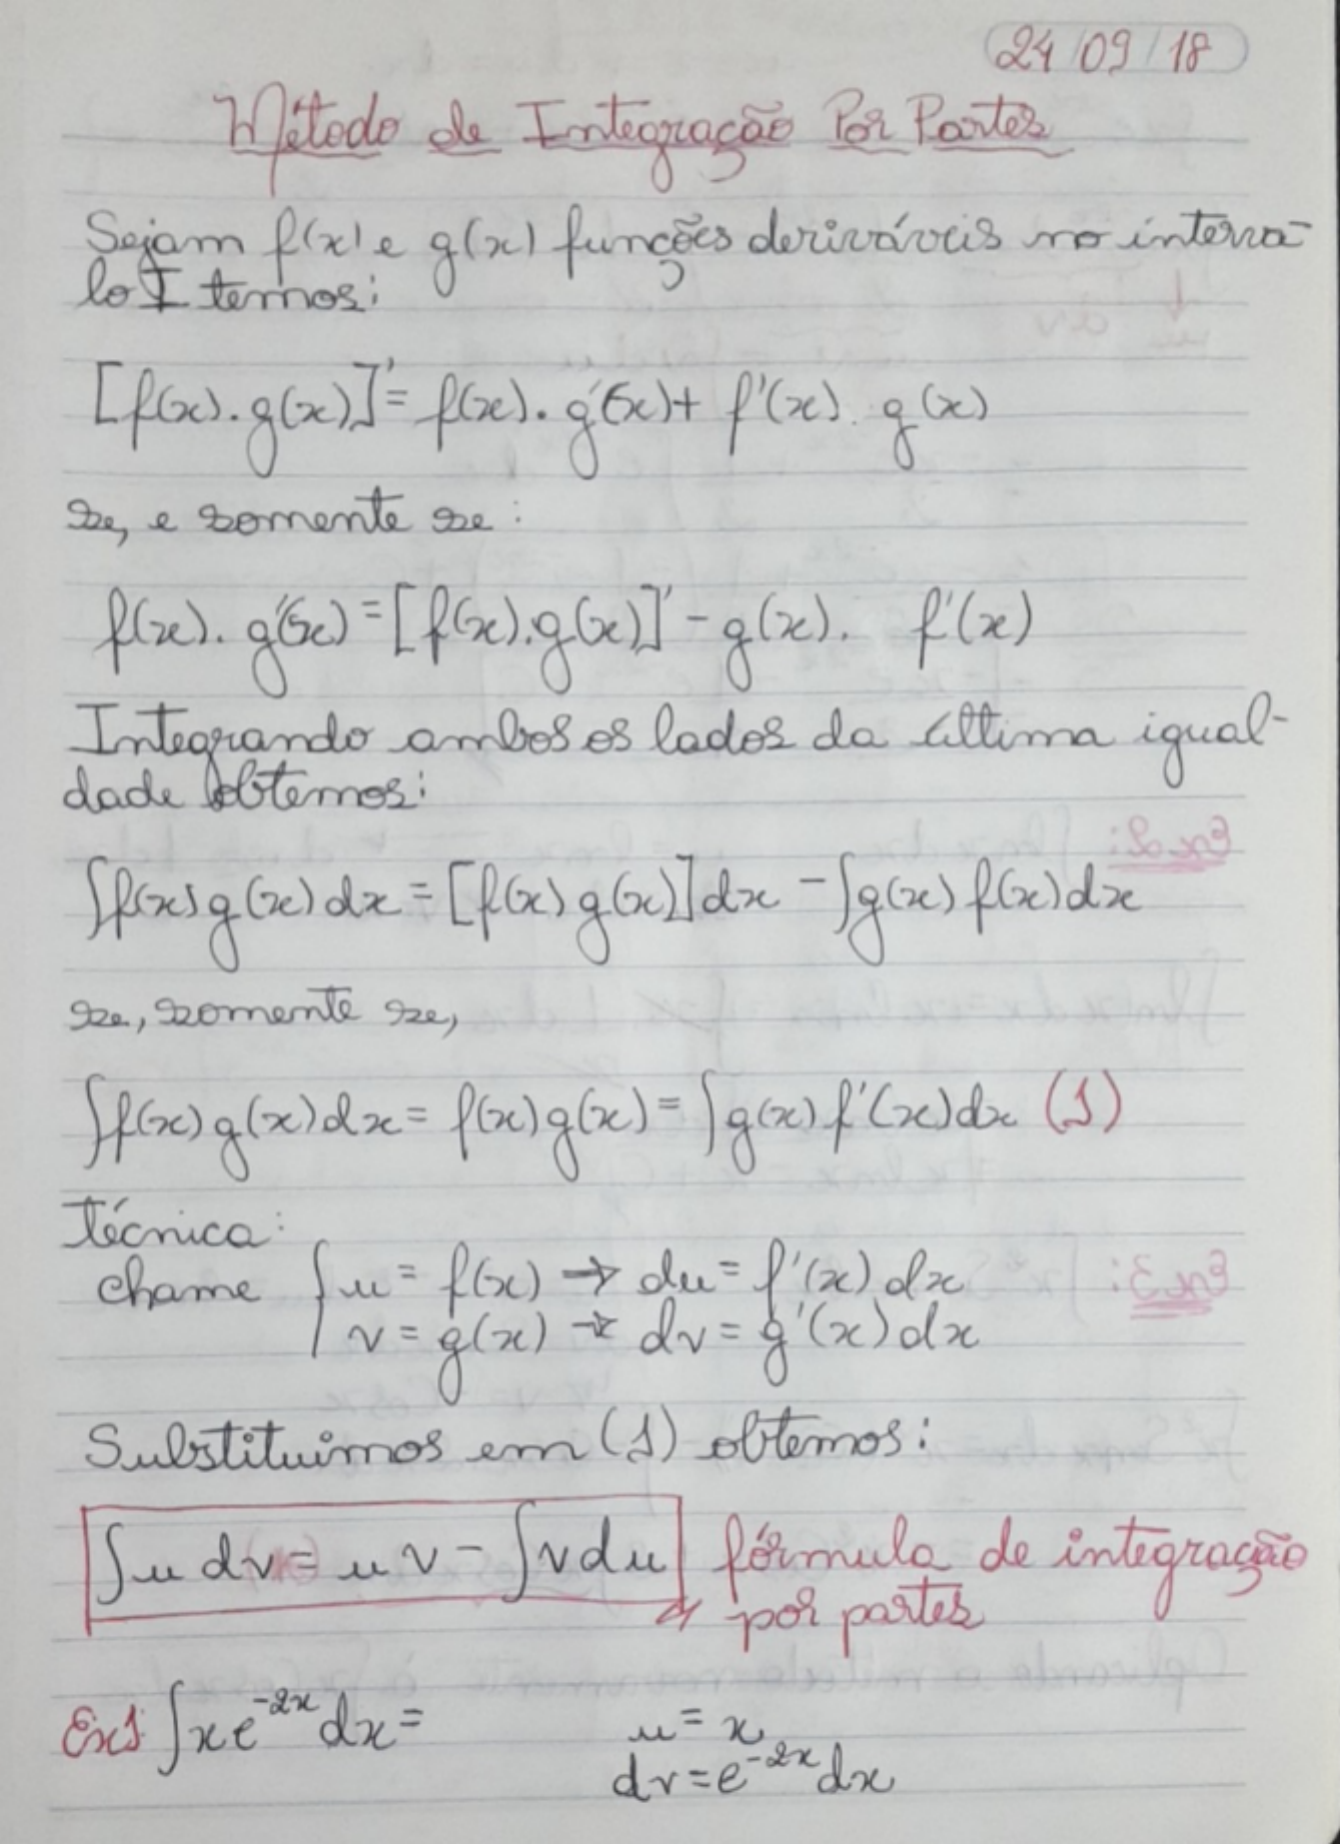 24/09/18
Método de Integração Por Partes
Sejam f(x) e g(x) funções deriváveis no interva-
lo I temos:
[f(x).g(x)]' = f(x).g'(x)+ f'(x).g(x)
se, e somente se:
f(x).g'(x) = [f(x).g(x)]' - g(x). f'(x)
Integrando ambos os lados da última igual-
dade obtemos:
∫f(x)g(x)dx = [f(x)g(x)]dx - ∫g(x)f(x)dx
se, somente se,
∫f(x)g(x)dx = f(x)g(x) = ∫g(x)f'(x)dx (1)
Técnica:
chame { u = f(x) → du = f'(x)dx
v = g(x) → dv = g'(x)dx
Substituimos em (1) obtemos:
∫u dv = u v - ∫v du fórmula de integração
por partes
Ex1: ∫xe^-2x dx = u = x
dv = e^-2x dx